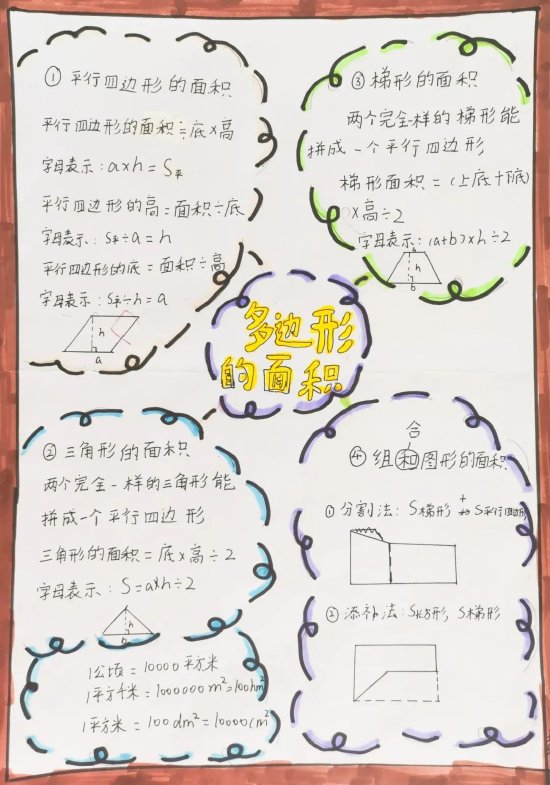 ① 平行四边形的面积
平行四边形的面积=底×高
字母表示:a×h=S平
平行四边形的高=面积÷底
字母表示:S平÷a=h
平行四边形的底=面积÷高
字母表示:S平÷h=a
h
a
③ 梯形的面积
两个完全一样的梯形能
拼成一个平行四边形
梯形面积=(上底+下底)
×高÷2
字母表示:(a+b)×h÷2
a
h
b
多边形
的面积
② 三角形的面积
两个完全一样的三角形能
拼成一个平行四边形
三角形的面积=底×高÷2
字母表示:S=a×h÷2
h
合
④ 组和图形的面积
① 分割法:S梯形+S平行四边形
② 添补法:S长方形,S梯形
1公顷=10000平方米
1平方千米=1000000m²=100hm²
1平方米=100dm²=10000cm²